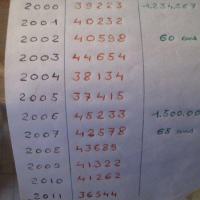 2000 39263 1.234.567
2001 40232
2002 40598 60
2003 44654
2004 38134
2005 37415
2006 45233 1.500.00
2007 42578 65
2008 43689
2009 41322
2010 41262
2011 36544